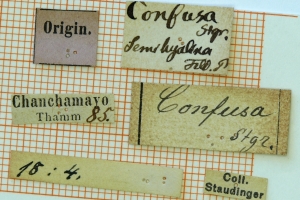 Origin.
Confusa
Stgr.
Semihyalina
Chanchamayo
Thamm 85.
Confusa
Stgr.
18:4.
Coll.
Staudinger